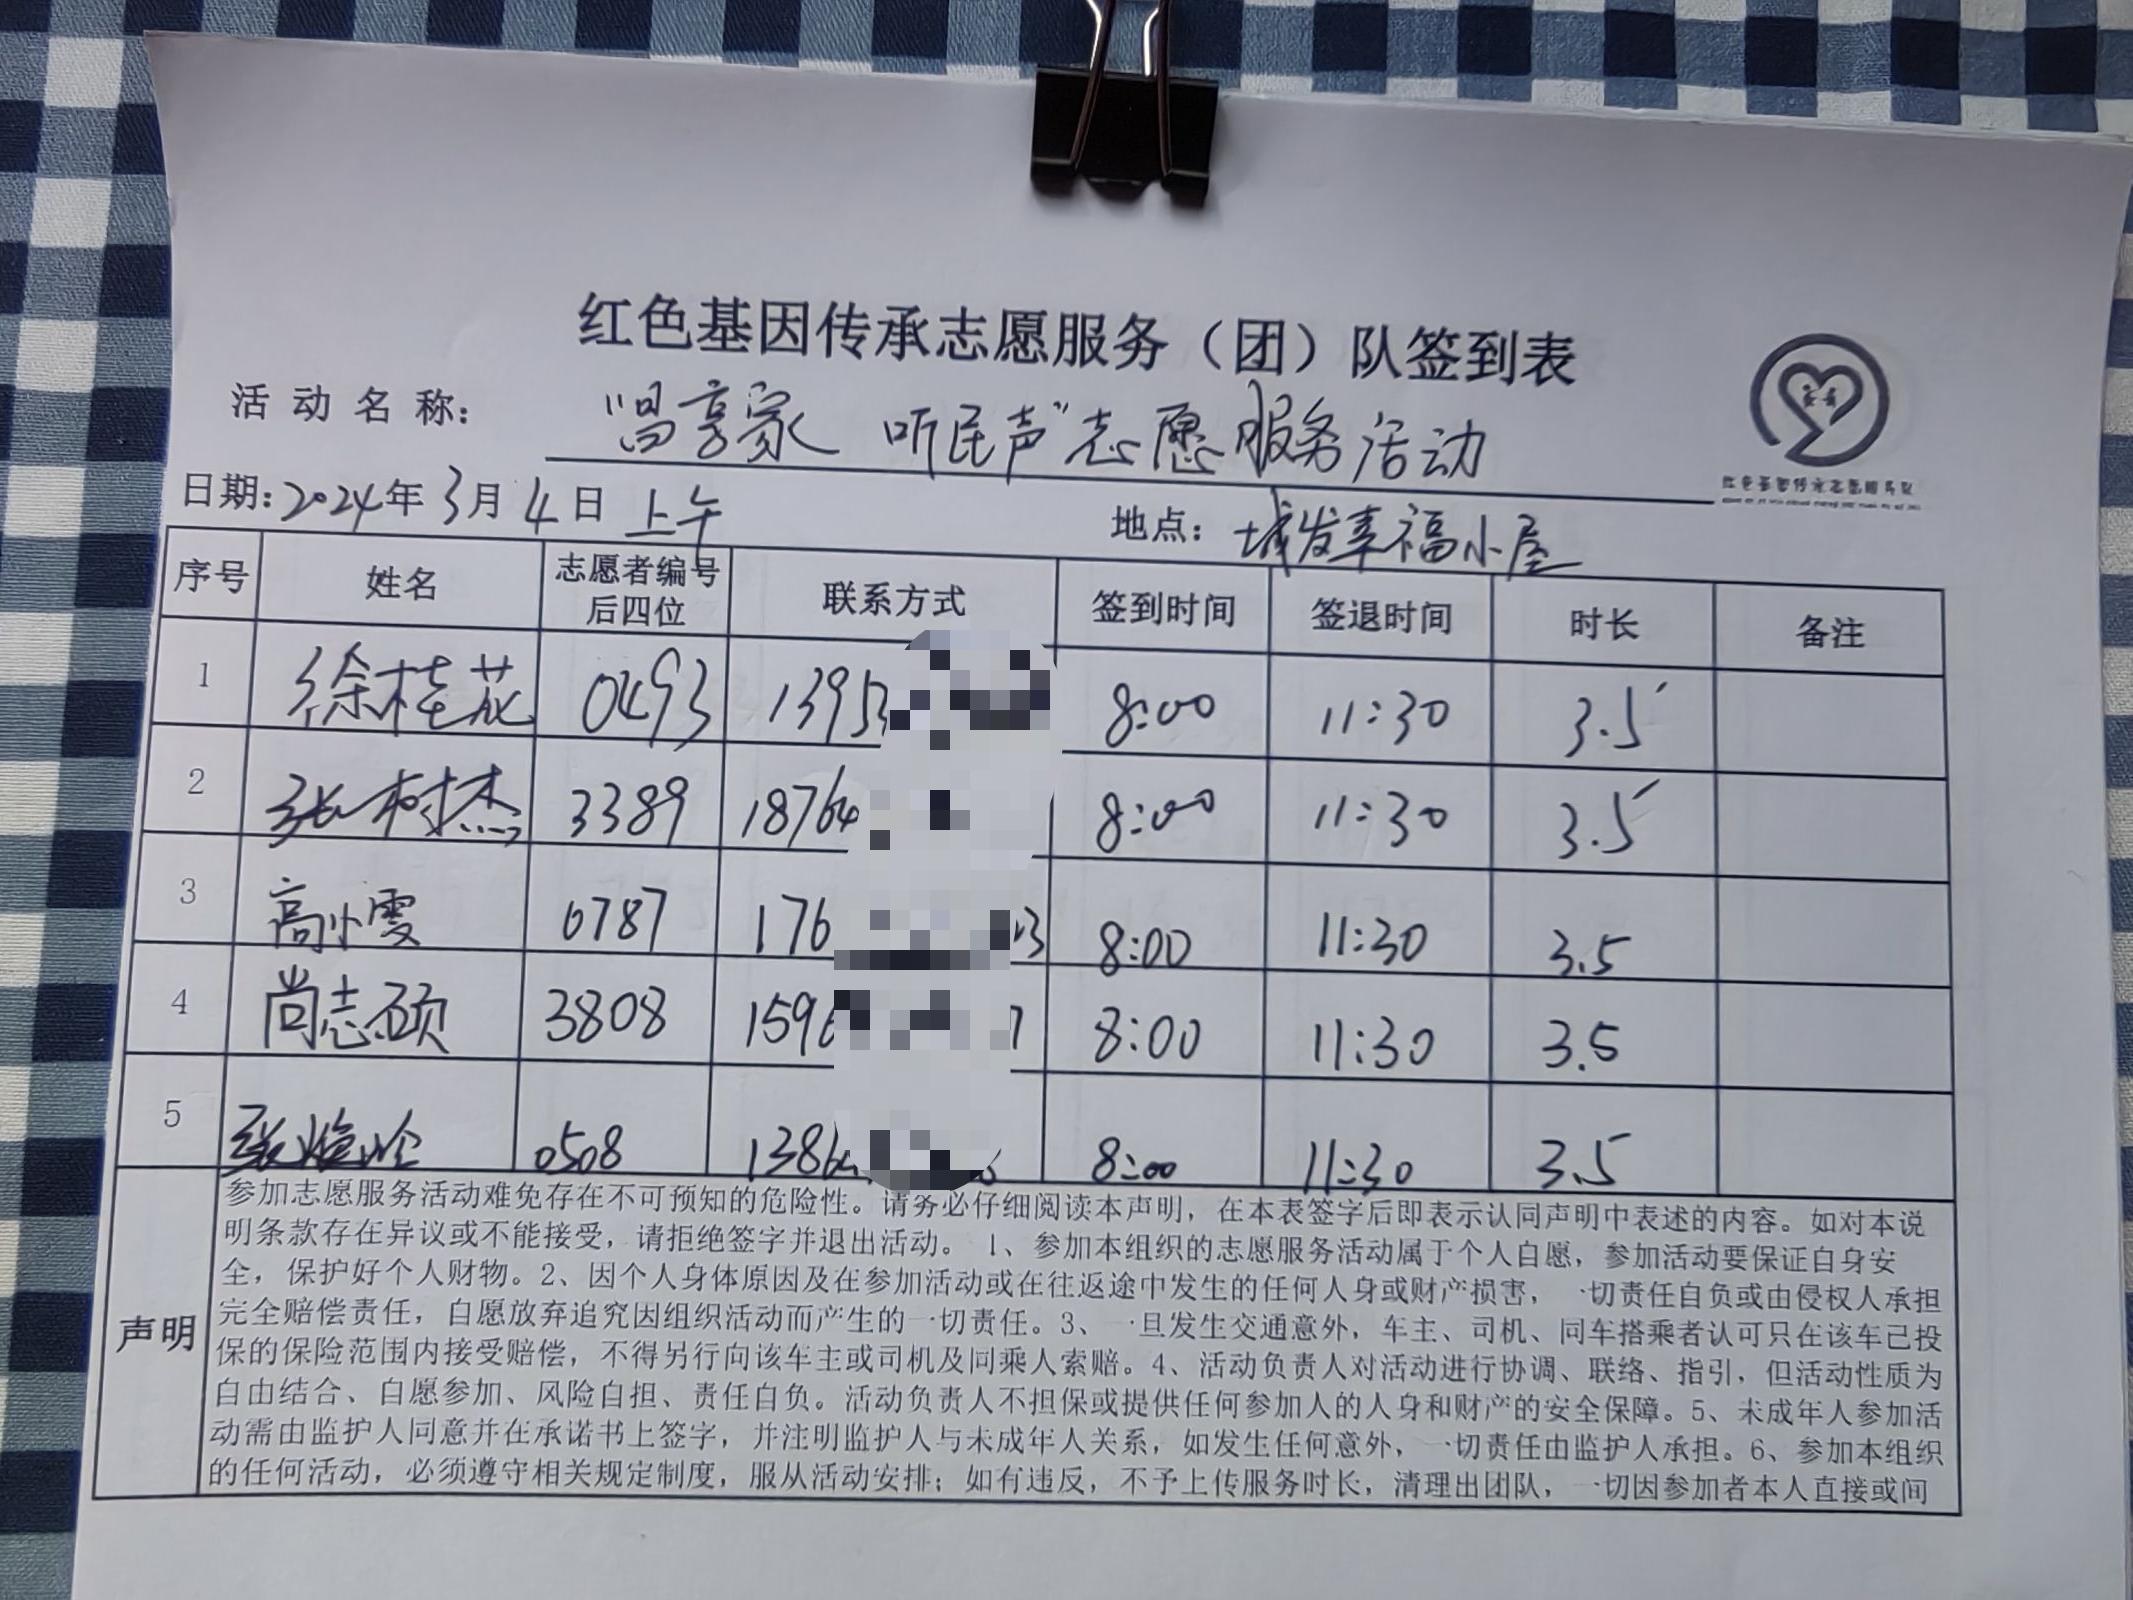 红色基因传承志愿服务（团）队签到表
活动名称： "唱享家 听民声"志愿服务活动
红色基因传承志愿服务队
日期：2024年3月4日上午 地点：城发幸福小屋
序号 姓名 志愿者编号后四位 联系方式 签到时间 签退时间 时长 备注
1 徐桂花 0493 1395 8:00 11:30 3.5
2 张树杰 3389 18764 8:00 11:30 3.5
3 高小雯 0787 176 3 8:00 11:30 3.5
4 尚志硕 3808 1596 7 8:00 11:30 3.5
5 张 0508 1386 8:00 11:30 3.5
声明
参加志愿服务活动难免存在不可预知的危险性。请务必仔细阅读本声明，在本表签字后即表示认同声明中表述的内容。如对本说
明条款存在异议或不能接受，请拒绝签字并退出活动。 1、参加本组织的志愿服务活动属于个人自愿，参加活动要保证自身安
全，保护好个人财物。2、因个人身体原因及在参加活动或在往返途中发生的任何人身或财产损害，一切责任自负或由侵权人承担
完全赔偿责任，自愿放弃追究因组织活动而产生的一切责任。3、一旦发生交通意外，车主、司机、同车搭乘者认可只在该车已投
保的保险范围内接受赔偿，不得另行向该车主或司机及同乘人索赔。4、活动负责人对活动进行协调、联络、指引，但活动性质为
自由结合、自愿参加、风险自担、责任自负。活动负责人不担保或提供任何参加人的人身和财产的安全保障。5、未成年人参加活
动需由监护人同意并在承诺书上签字，并注明监护人与未成年人关系，如发生任何意外，一切责任由监护人承担。6、参加本组织
的任何活动，必须遵守相关规定制度，服从活动安排；如有违反，不予上传服务时长，清理出团队，一切因参加者本人直接或间